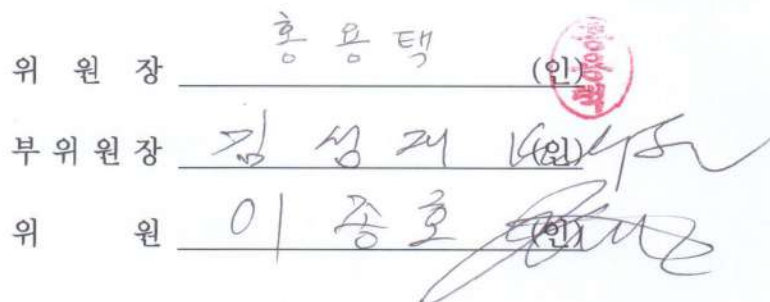 위 원 장 홍 용 택 (인)
부 위 원 장 김 성 재 (인)
위 원 이 종 호 (인)